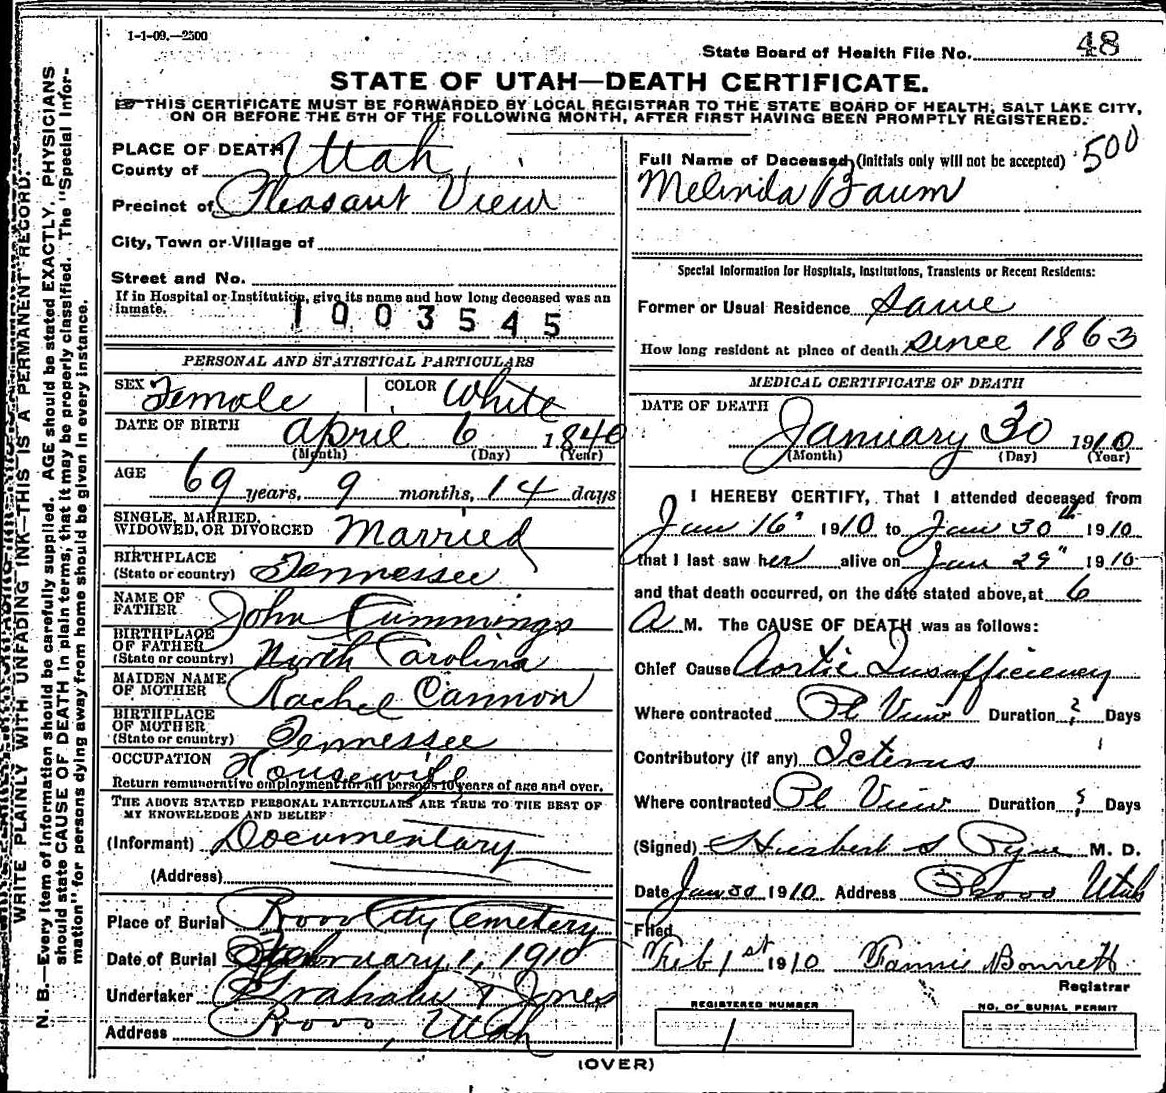 1-1-09.—2500
State Board of Health File No. 48
STATE OF UTAH—DEATH CERTIFICATE.
THIS CERTIFICATE MUST BE FORWARDED BY LOCAL REGISTRAR TO THE STATE BOARD OF HEALTH, SALT LAKE CITY,
ON OR BEFORE THE 5TH OF THE FOLLOWING MONTH, AFTER FIRST HAVING BEEN PROMPTLY REGISTERED.
WRITE PLAINLY WITH UNFADING INK—THIS IS A PERMANENT RECORD.
N. B.—Every item of information should be carefully supplied. AGE should be stated EXACTLY. PHYSICIANS
should state CAUSE OF DEATH in plain terms, that it may be properly classified. The "Special Infor-
mation" for persons dying away from home should be given in every instance.
PLACE OF DEATH
County of Utah
Precinct of Pleasant View
City, Town or Village of
Street and No.
If in Hospital or Institution, give its name and how long deceased was an
inmate.
1003545
PERSONAL AND STATISTICAL PARTICULARS
SEX Female COLOR White
DATE OF BIRTH April 6 1840
(Month) (Day) (Year)
AGE 69 years, 9 months, 14 days
SINGLE, MARRIED,
WIDOWED, OR DIVORCED Married
BIRTHPLACE
(State or country) Tennessee
NAME OF
FATHER John Cummings
BIRTHPLACE
OF FATHER
(State or country) North Carolina
MAIDEN NAME
OF MOTHER Rachel Cannon
BIRTHPLACE
OF MOTHER
(State or country) Tennessee
OCCUPATION Housewife
Return remunerative employment for all persons 10 years of age and over.
THE ABOVE STATED PERSONAL PARTICULARS ARE TRUE TO THE BEST OF
MY KNOWLEDGE AND BELIEF
(Informant) Documentary
(Address)
Place of Burial Provo City Cemetery
Date of Burial February 1, 1910
Undertaker Graham & Jones
Address Provo, Utah
Full Name of Deceased (initials only will not be accepted) 500
Melinda Baum
Special Information for Hospitals, Institutions, Transients or Recent Residents:
Former or Usual Residence Same
How long resident at place of death since 1863
MEDICAL CERTIFICATE OF DEATH
DATE OF DEATH
January 30 1910
(Month) (Day) (Year)
I HEREBY CERTIFY, That I attended deceased from
Jan 16" 1910 to Jan 30th 1910
that I last saw her alive on Jan 29" 1910
and that death occurred, on the date stated above, at 6
A M. The CAUSE OF DEATH was as follows:
Chief Cause Aortic Insufficiency
Where contracted Pl View Duration ? Days
Contributory (if any) Icterus
Where contracted Pl View Duration Days
(Signed) Herbert S Pyne M. D.
Date Jan 30 1910 Address Provo Utah
Filed
Feb 1st 1910 Fannie Bonnett
Registrar
REGISTERED NUMBER
1
NO. OF BURIAL PERMIT
(OVER)